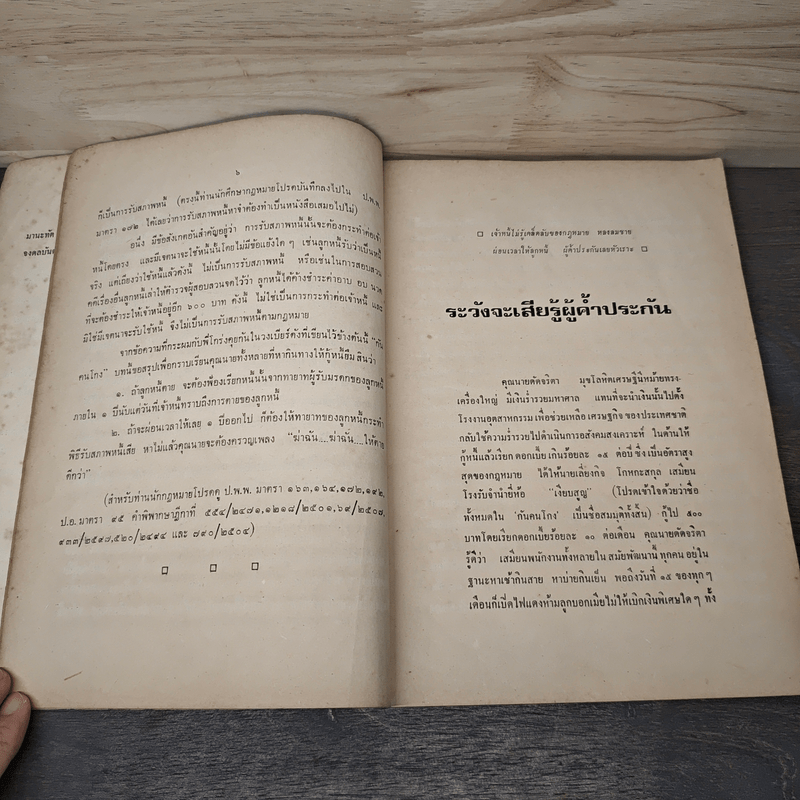 มานะหัด
จงดลบันด
๖
ก็เป็นการรับสภาพหนี้ (ตรงนี้ท่านนักศึกษากฎหมายโปรดบันทึกลงไปใน ป.พ.พ.
มาตรา ๑๗๒ ได้เลยว่าการรับสภาพหนี้หาจำต้องทำเป็นหนังสือเสมอไปไม่)
อนึ่ง มีข้อสังเกตอันสำคัญอยู่ว่า การรับสภาพหนี้นั้นจะต้องกระทำต่อเจ้า
หนี้โดยตรง และมีเจตนาจะใช้หนี้นั้นโดยไม่มีข้อแย้งใด ๆ เช่นลูกหนี้รับว่าเป็นหนี้
จริง แต่เถียงว่าใช้หนี้แล้วดังนี้ ไม่เป็นการรับสภาพหนี้ หรือเช่นในการสอบสวน
คดีเรื่องอื่นลูกหนี้เล่าให้ตำรวจผู้สอบสวนจดไว้ว่า ลูกหนี้ได้ค้างชำระค่าอาบ อบ นวด
ที่จะต้องชำระให้เจ้าหนี้อยู่อีก ๖๐๐ บาท ดังนี้ ไม่ใช่เป็นการกระทำต่อเจ้าหนี้ และ
มิใช่มีเจตนาจะรับใช้หนี้ จึงไม่เป็นการรับสภาพหนี้ตามกฎหมาย
จากข้อความที่กระผมกับพี่โกร่งคุยกันในวงเบียร์ดังที่เขียนไว้ข้างต้นนี้ "กัน
คนโกง" บทนี้ขอสรุปเพื่อกราบเรียนคุณนายทั้งหลายที่หากินทางให้กู้หนี้ยืม สินว่า
๑. ถ้าลูกหนี้ตาย จะต้องฟ้องเรียกหนี้นั้นจากทายาทผู้รับมรดกของลูกหนี้
ภายใน ๑ ปีนับแต่วันที่เจ้าหนี้ทราบถึงการตายของลูกหนี้
๒. ถ้าจะผ่อนเวลาให้เลย ๑ ปีออกไป ก็ต้องให้ทายาทของลูกหนี้กระทำ
พิธีรับสภาพหนี้เสีย หาไม่แล้วคุณนายจะต้องครวญเพลง "ฆ่าฉัน....ฆ่าฉันให้ตาย
ดีกว่า"
(สำหรับท่านนักกฎหมายโปรดดู ป.พ.พ. มาตรา ๑๖๓,๑๖๔,๑๗๒,๑๙๒,
ป.อ. มาตรา ๙๕ คำพิพากษาฎีกาที่ ๕๕๔/๒๔๗๑,๑๒๑๘/๒๕๐๑,๖๙/๒๕๐๗,
๙๓๓/๒๕๙๗,๕๒๐/๒๔๙๔ และ ๗๙๐/๒๕๐๔)
เจ้าหนี้ไม่รู้เคล็ดลับของกฎหมาย หลงลมชาย
ผ่อนเวลาให้ลูกหนี้ ผู้ค้ำประกันเลยหัวเราะ
ระวังจะเสียรู้ผู้ค้ำประกัน
คุณนายดัดจริตา มุขโลหิตเศรษฐีนีหม้ายทรง-
เครื่องใหญ่ มีเงินร่ำรวยมหาศาล แทนที่จะนำเงินนั้นไปตั้ง
โรงงานอุตสาหกรรม เพื่อช่วยเหลือ เศรษฐกิจ ของประเทศชาติ
กลับใช้ความร่ำรวยไปดำเนินการสังคมสงเคราะห์ ในด้านให้
กู้หนี้แล้วเรียก ดอกเบี้ยเกินร้อยละ ๑๕ ต่อปี ซึ่ง เป็นอัตราสูง
สุดของกฎหมาย ได้ให้นายเลี่ยงกิจ โกหกะสกุล เสมียน
โรงรับจำนำยี่ห้อ "เงียบสูญ" (โปรดเข้าใจด้วยว่าชื่อ
ทั้งหมดใน 'กันคนโกง' เป็นชื่อสมมุติทั้งสิ้น) กู้ไป ๕๐๐
บาทโดยเรียกดอกเบี้ยร้อยละ ๑๐ ต่อเดือน คุณนายดัดจริตา
รู้ดีว่า เสมียนพนักงานทั้งหลายใน สมัยพัฒนานี้ ทุกคน อยู่ใน
ฐานะหาเช้ากินสาย หาบ่ายกินเย็น พอถึงวันที่ ๑๕ ของทุก ๆ
เดือนก็เปิดไฟแดงห้ามลูกบอกเมียไม่ให้เบิกเงินพิเศษใด ๆ ทั้ง